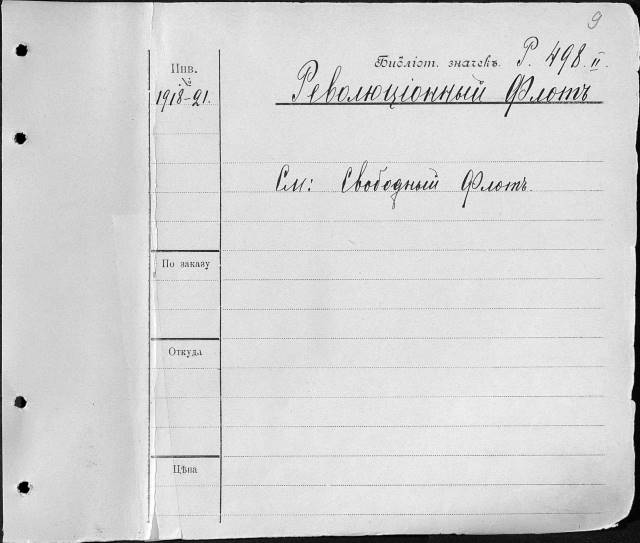 9
Библіот. значекъ. Р. 498. II.
Инв.
№
1918-21.
Революціонный Флотъ
См: Свободный Флотъ.
По заказу
Откуда
Цѣна